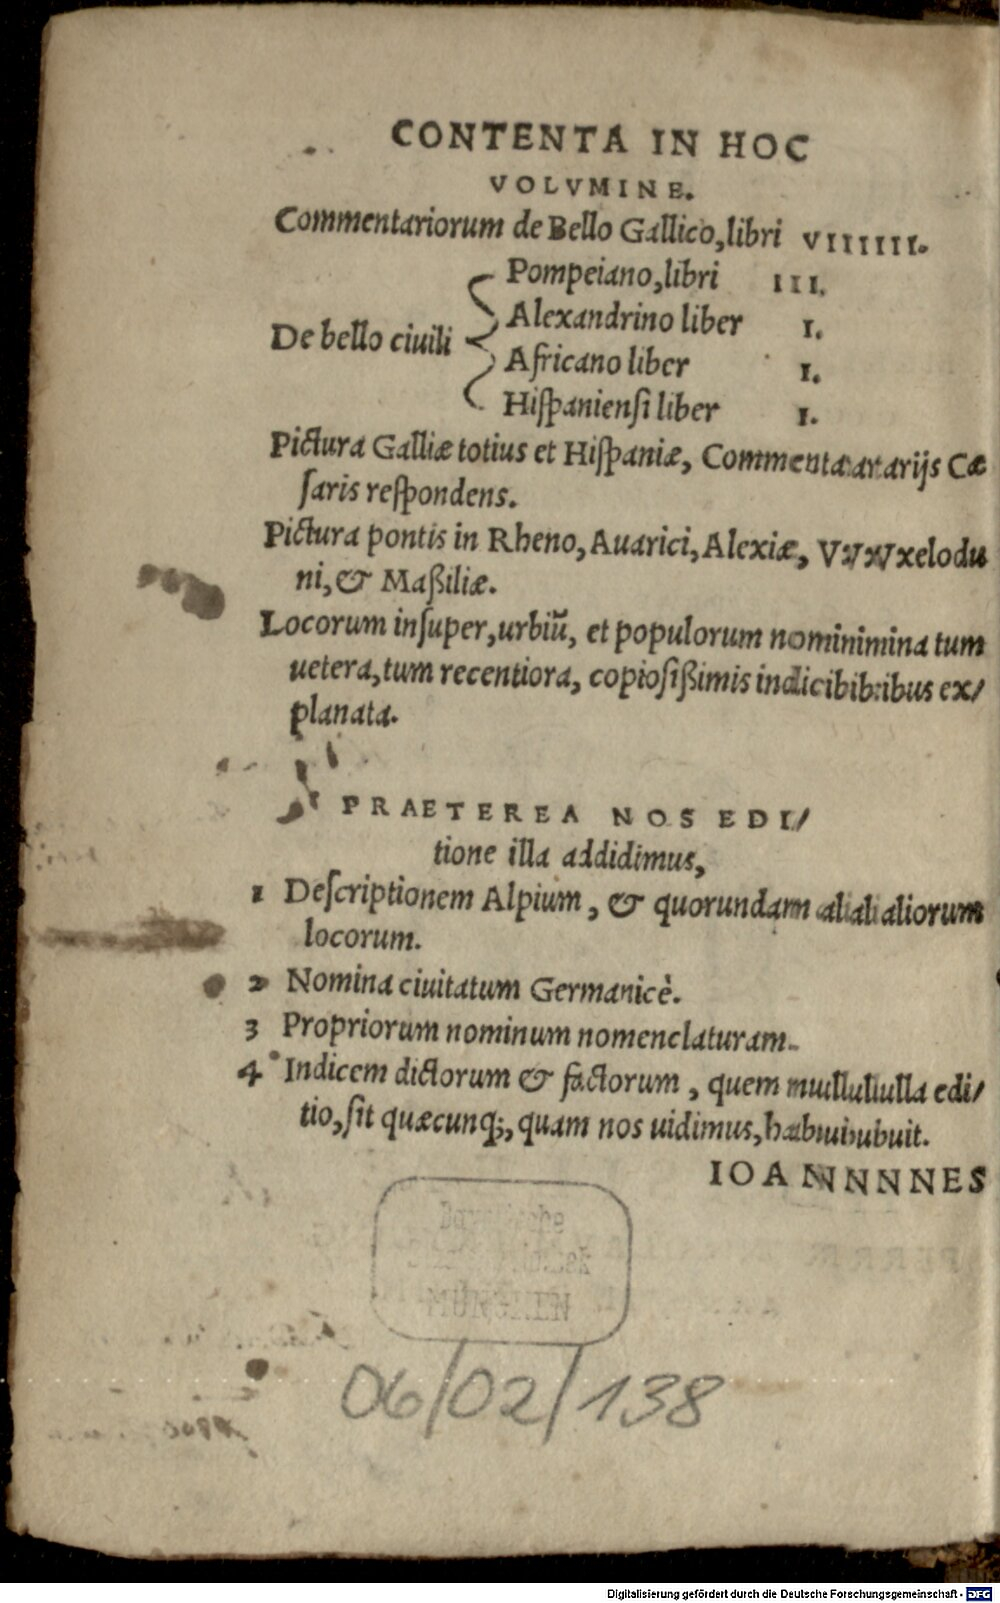 CONTENTA IN HOC
VOLVMINE.
Commentariorum de Bello Gallico, libri VIIIIII.
De bello ciuili
Pompeiano, libri III.
Alexandrino liber I.
Africano liber I.
Hiſpanienſi liber I.
Pictura Galliæ totius et Hiſpaniæ, Commentaararijs Cæ
ſaris reſpondens.
Pictura pontis in Rheno, Auarici, Alexiæ, VVxVxelodu
ni, & Maßiliæ.
Locorum inſuper, urbiũ, et populorum nominimina tum
uetera, tum recentiora, copioſißimis indicibibribus ex/
planata.
PRAETEREA NOS EDI/
tione illa addidimus,
1 Deſcriptionem Alpium, & quorundam alialialiorum
locorum.
2 Nomina ciuitatum Germanicè.
3 Propriorum nominum nomenclaturam.
4 Indicem dictorum & factorum, quem nullullulla edi/
tio, ſit quæcunq;, quam nos uidimus, habuibubuit.
IOANNNNES
06/02/138
Digitalisierung gefördert durch die Deutsche Forschungsgemeinschaft - DFG